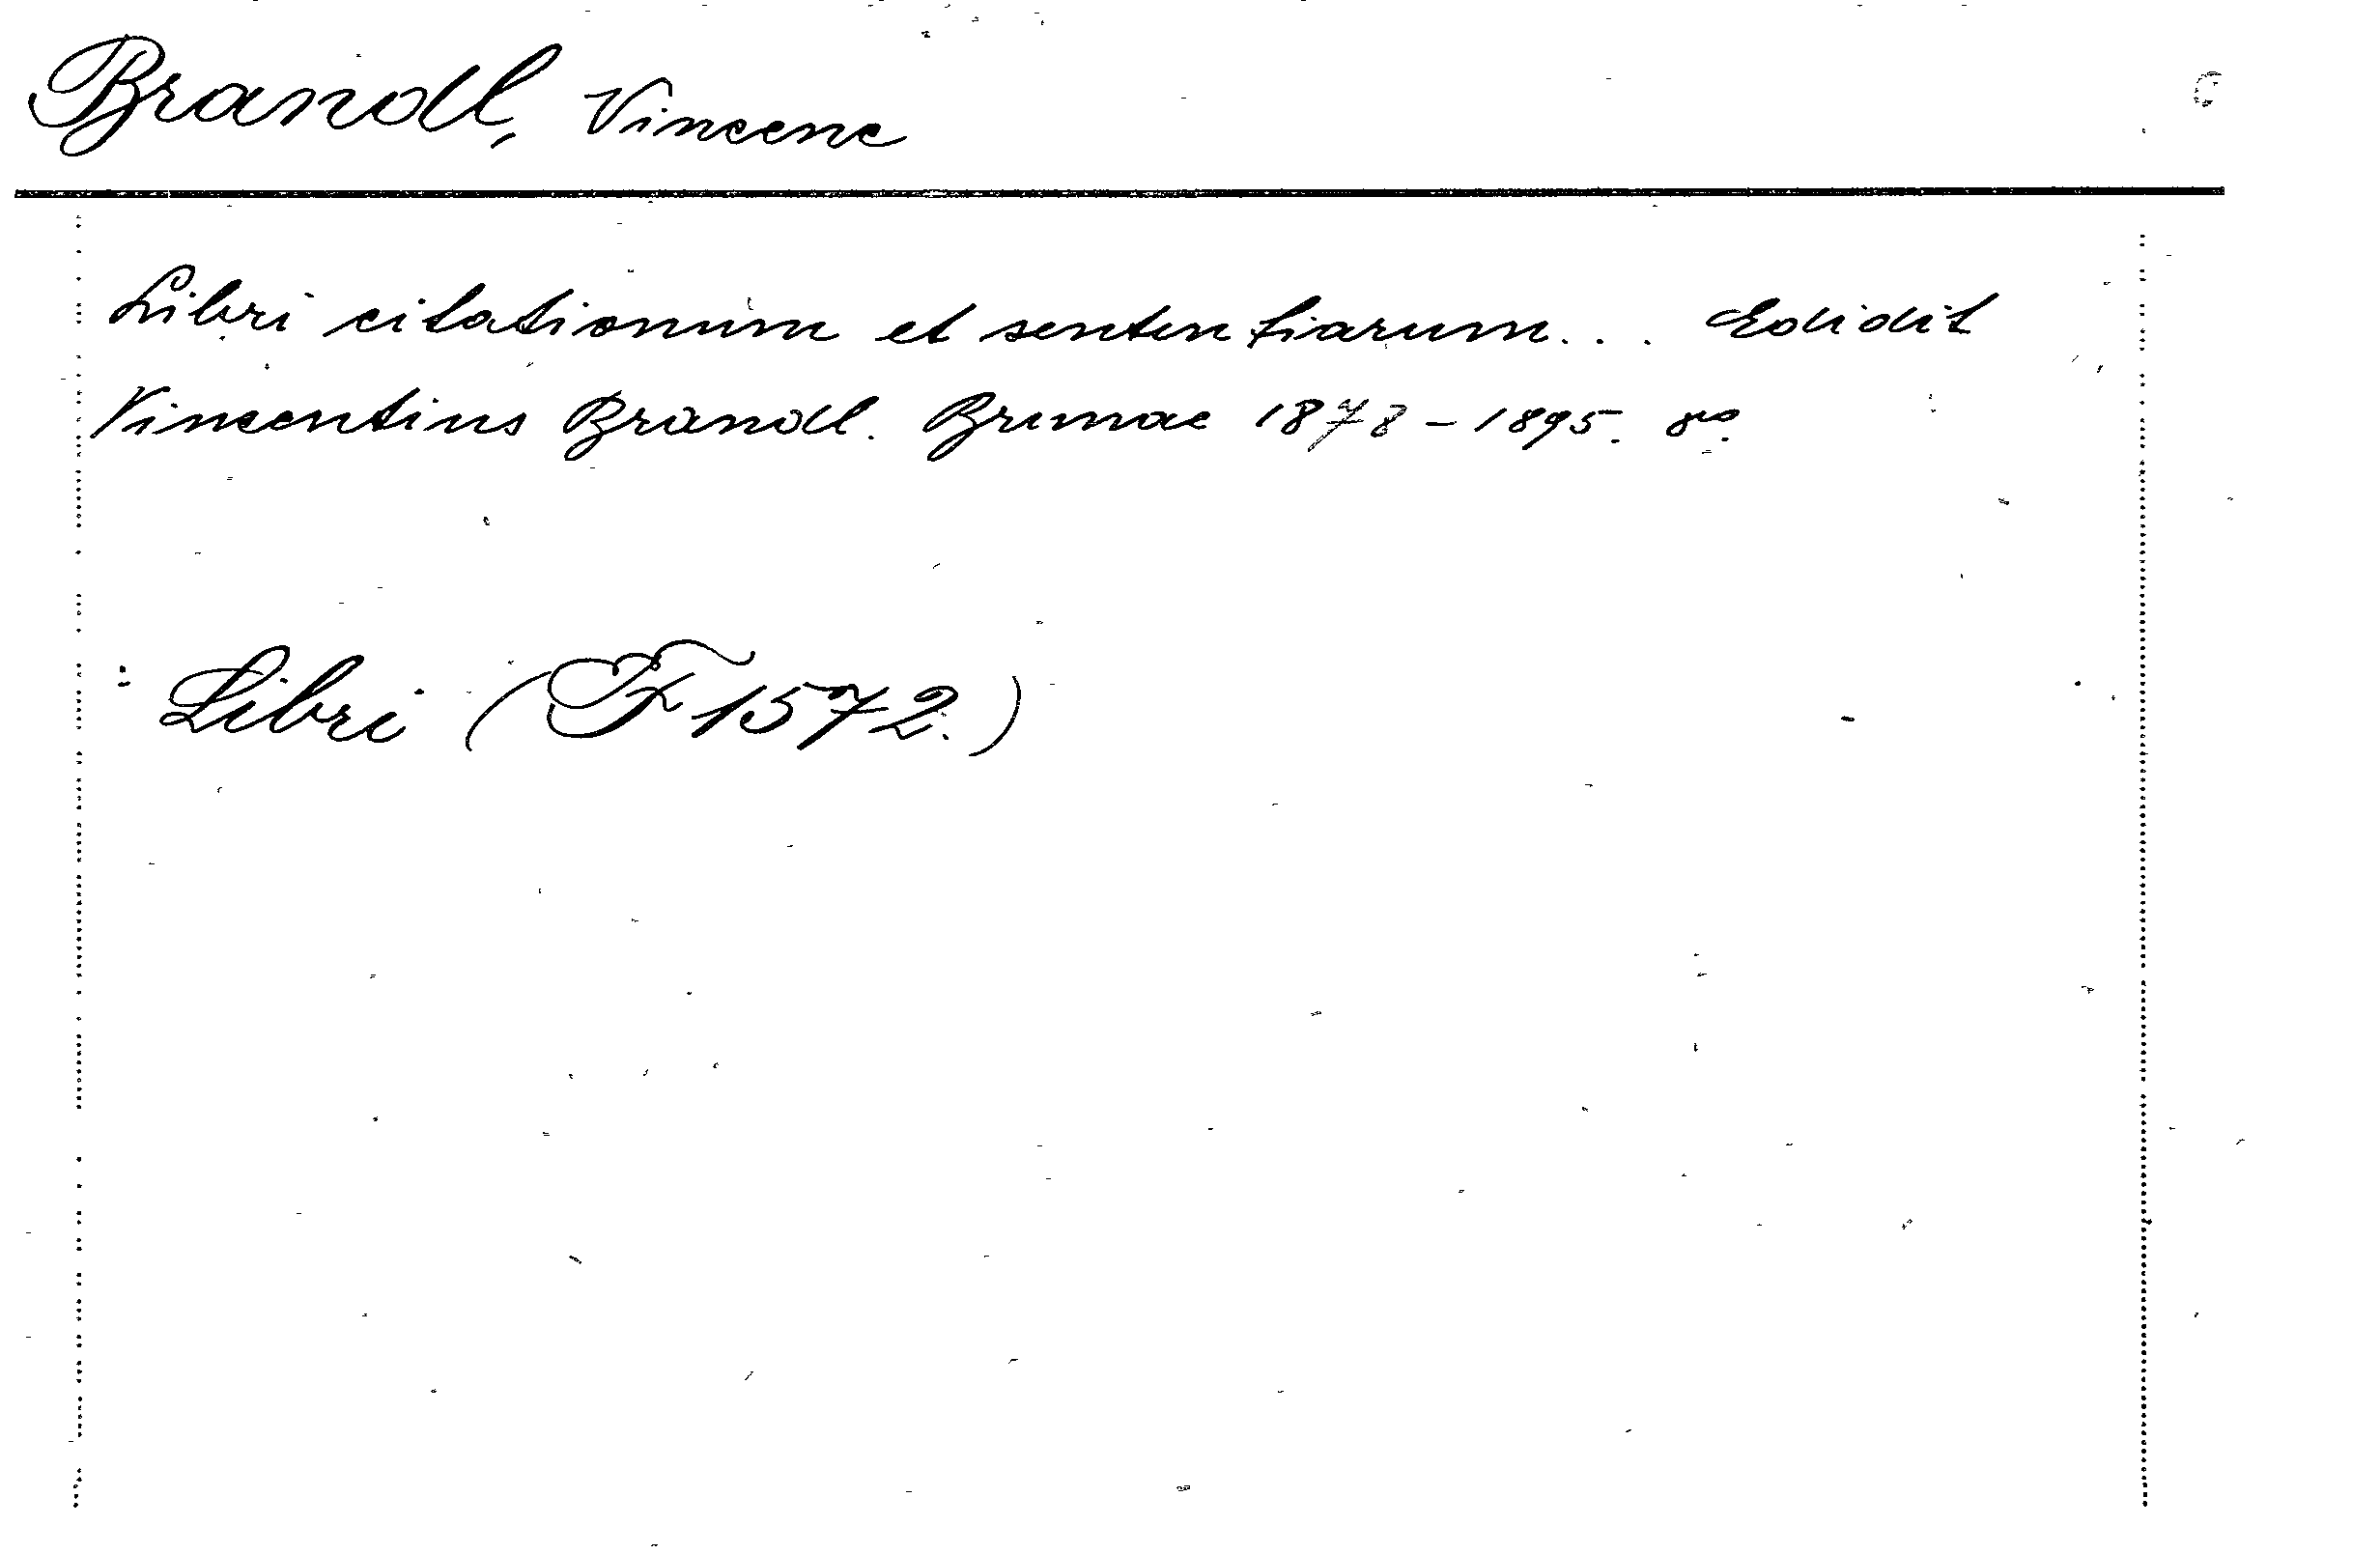 Brandl, Vincenc
Libri citationum et sententiarum... Edidit
Vincentius Brandl. Brunae 1878-1895. 8vo.
: Libri (F 1572.)